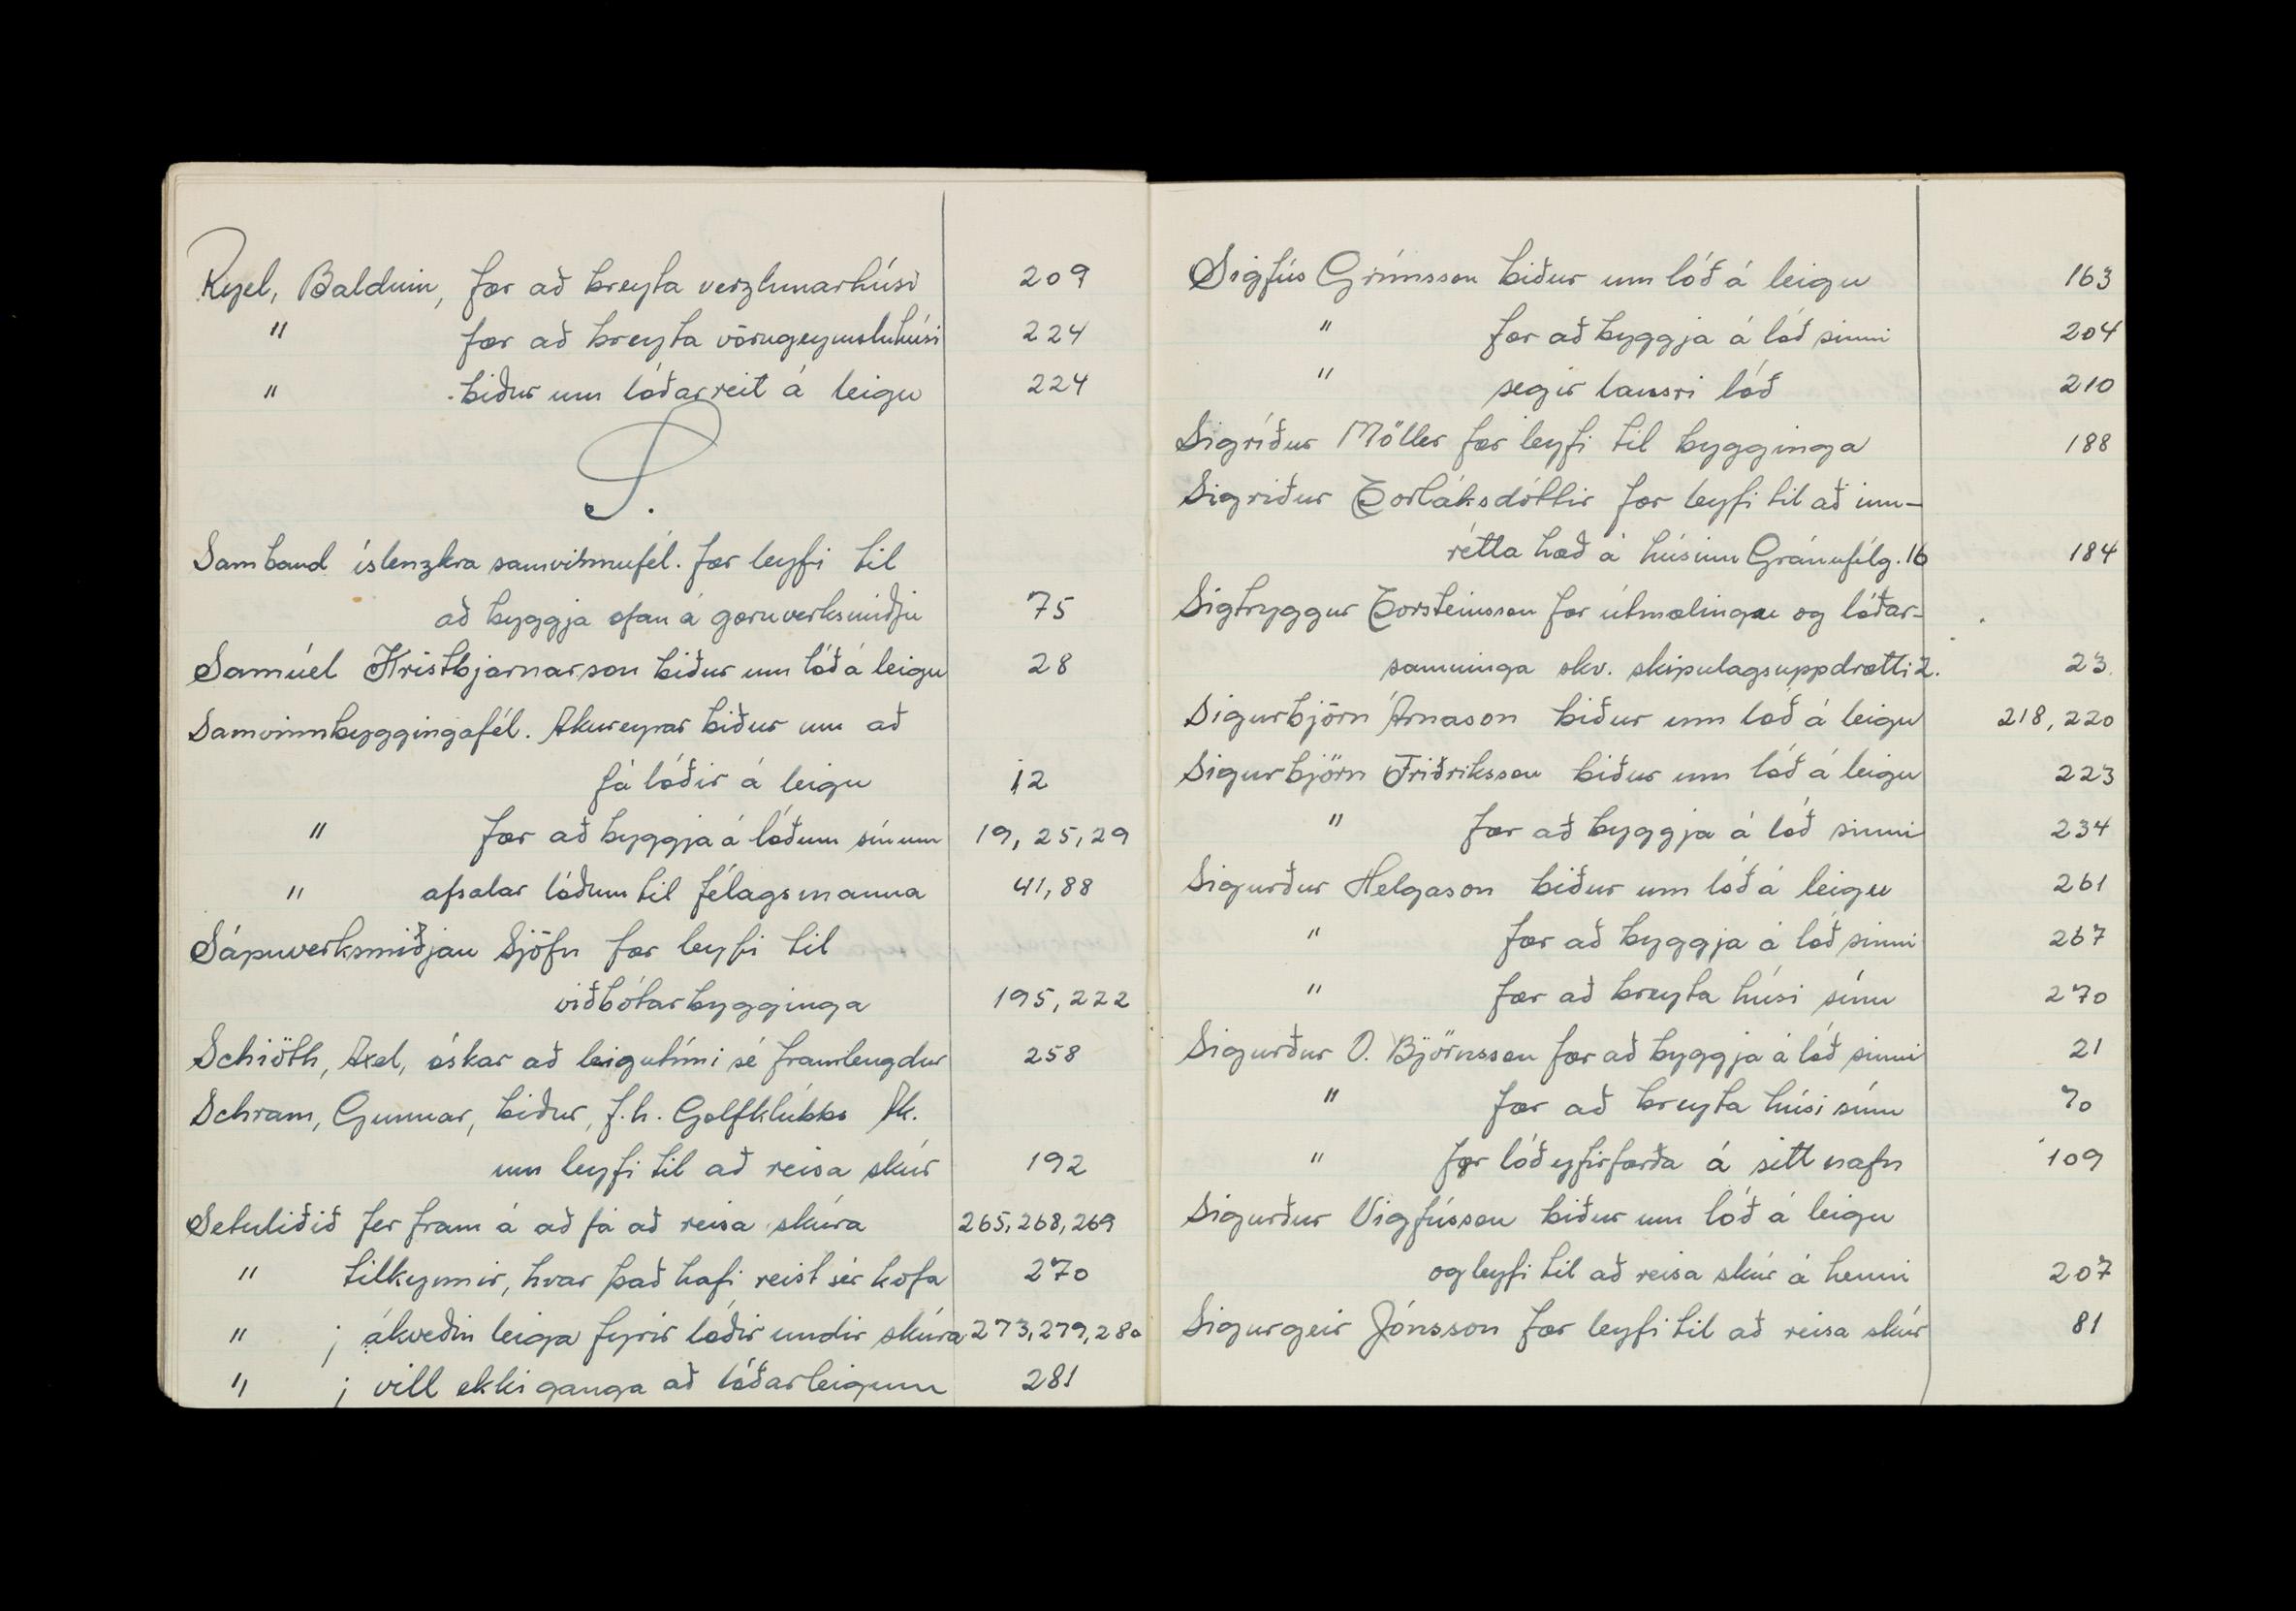 Ryel, Balduin, fær að breyta verzlunarhúsi 209
" fær að breyta vörugeymsluhúsi 224
" biður um lóðarreit á leigu 224
S.
Samband íslenzkra samvinnufél. fær leyfi til
að byggja ofan á gæruverksmiðju 75
Samúel Kristbjarnarson biður um lóð á leigu 28
Samvinnubyggingafél. Akureyrar biður um að
fá lóðir á leigu 12
" fær að byggja á lóðum sínum 19, 25, 29
" afsalar lóðum til félagsmanna 41, 88
Sápuverksmiðjan Sjöfn fær leyfi til
viðbótarbygginga 195, 222
Schiöth, Axel, óskar að leigutími sé framlengdur 258
Schram, Gunnar, biður, f.h. Golfklúbbs Ak.
um leyfi til að reisa skúr 192
Setuliðið fer fram á að fá að reisa skúra 265, 268, 269
" tilkynnir, hvar það hafi reist sér kofa 270
" ; ákveðin leiga fyrir lóðir undir skúra 273, 279, 280
" ; vill ekki ganga að lóðarleigunni 281
Sigfús Grímsson biður um lóð á leigu 163
" fær að byggja á lóð sinni 204
" segir lausri lóð 210
Sigríður Möller fær leyfi til bygginga 188
Sigríður Þorláksdóttir fær leyfi til að inn-
rétta hæð á húsinu Gránufélg. 16 184
Sigtryggur Þorsteinsson fær útmælingu og lóðar-
samninga skv. skipulagsuppdrætti 2. 23
Sigurbjörn Árnason biður um lóð á leigu 218, 220
Sigurbjörn Friðriksson biður um lóð á leigu 223
" fær að byggja á lóð sinni 234
Sigurður Helgason biður um lóð á leigu 261
" fær að byggja á lóð sinni 267
" fær að breyta húsi sínu 270
Sigurður O. Björnsson fær að byggja á lóð sinni 21
" fær að breyta húsi sínu 70
" fær lóð yfirfærða á sitt nafn 109
Sigurður Vigfússon biður um lóð á leigu
og leyfi til að reisa skúr á henni 207
Sigurgeir Jónsson fær leyfi til að reisa skúr 81